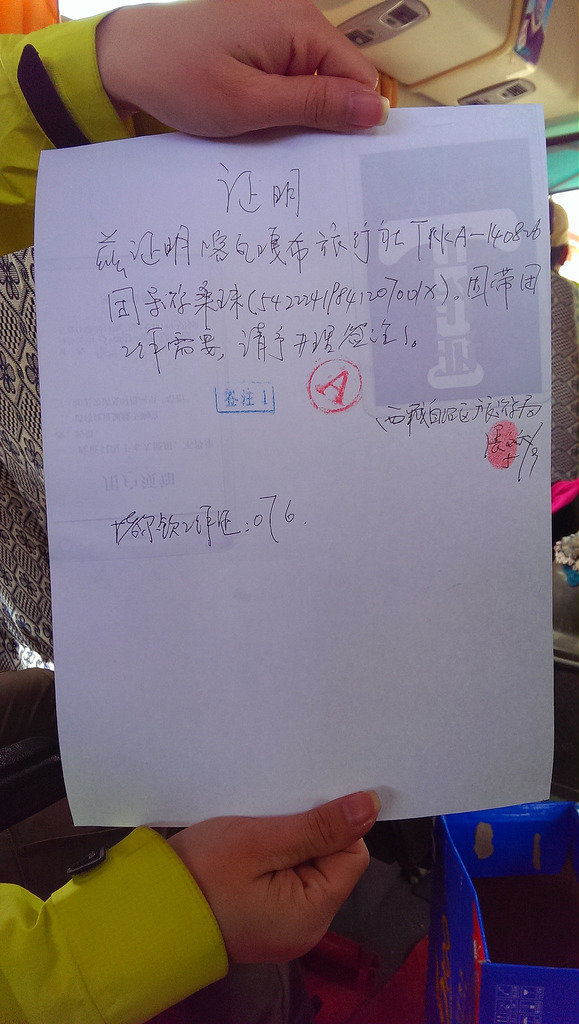 证明
兹证明喀瓦嘎布旅行社TRKA-140826
团导游桑珠(54222419841207001X).因带团
工作需要,请予办理签注1。
签注1
A
西藏自治区旅游局
工作证:076.